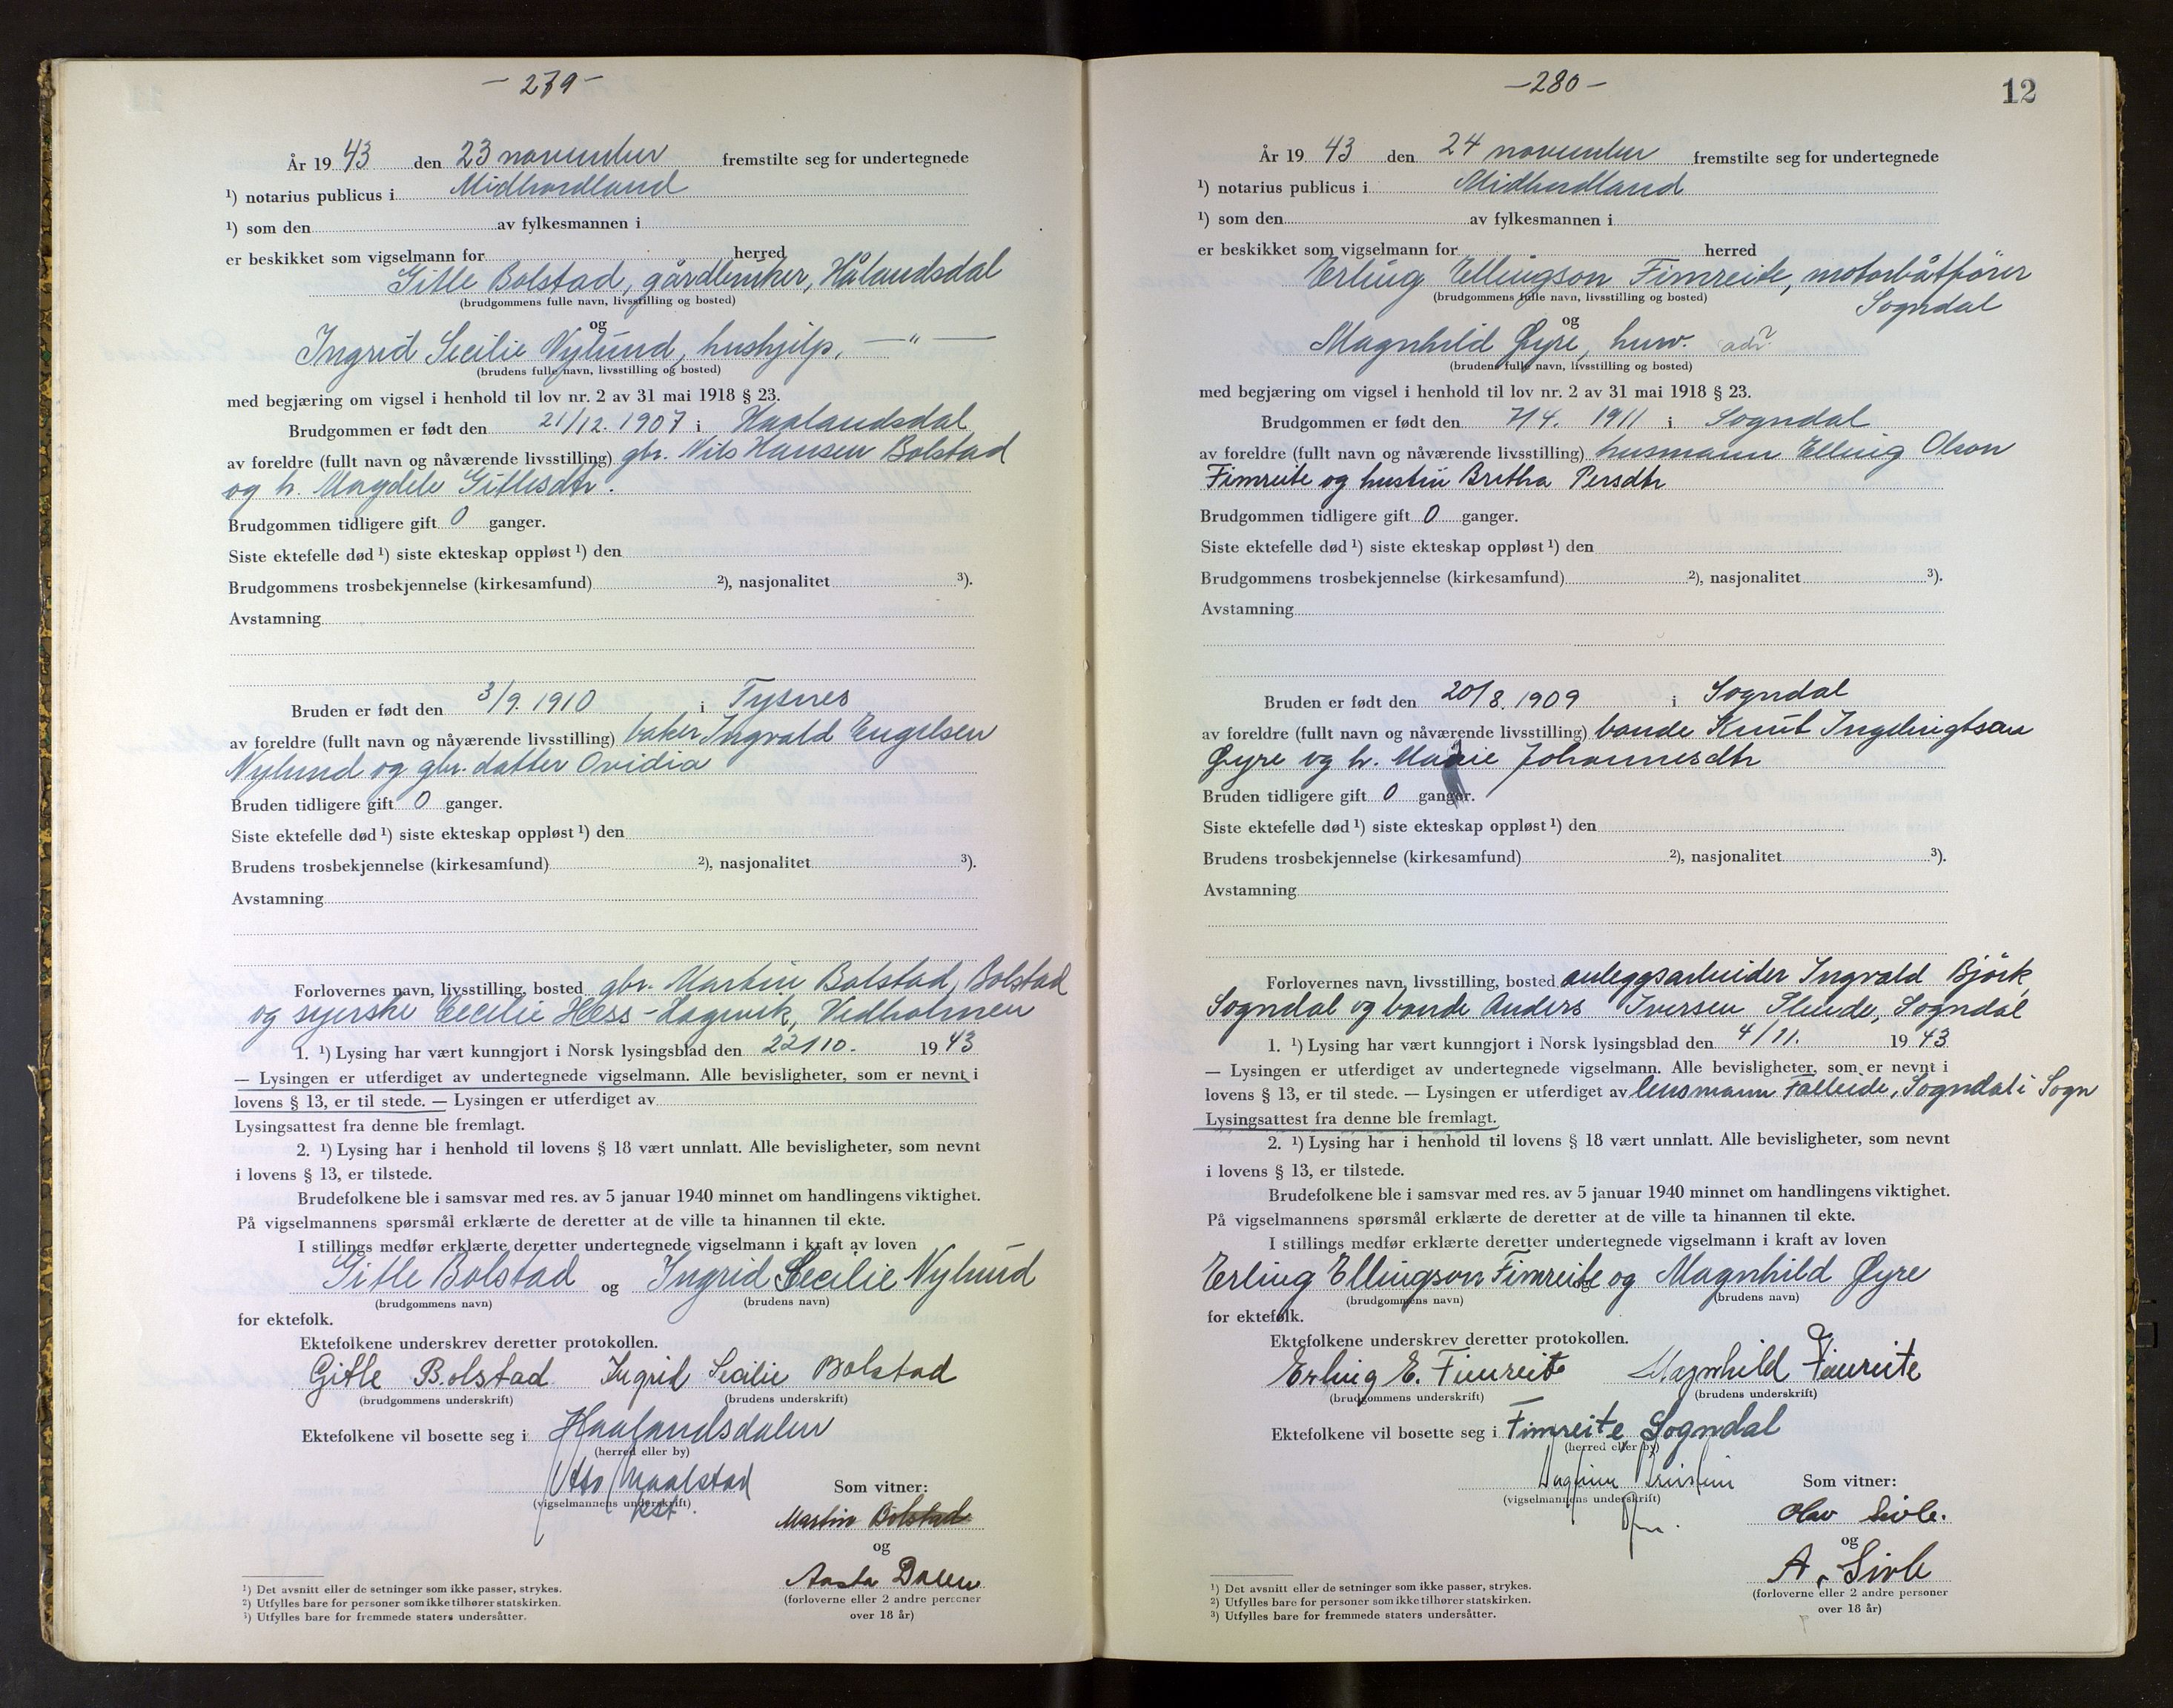 - 279 -
År 1943 den 23 november fremstilte seg for undertegnede
¹) notarius publicus i Midhordland
¹) som den av fylkesmannen i
er beskikket som vigselmann for herred
Gitle Bolstad, gårdbruker, Hålandsdal
(brudgommens fulle navn, livsstilling og bosted)
og
Ingrid Secilie Nylund, hushjelp, — " —
(brudens fulle navn, livsstilling og bosted)
med begjæring om vigsel i henhold til lov nr. 2 av 31 mai 1918 § 23.
Brudgommen er født den 21/12. 1907 i Haalandsdal
av foreldre (fullt navn og nåværende livsstilling) gbr. Nils Hansen Bolstad
og h. Magdele Gitlesdtr.
Brudgommen tidligere gift 0 ganger.
Siste ektefelle død ¹) siste ekteskap oppløst ¹) den
Brudgommens trosbekjennelse (kirkesamfund) ²), nasjonalitet ³).
Avstamning
Bruden er født den 3/9. 1910 i Tysnes
av foreldre (fullt navn og nåværende livsstilling) baker Ingvald Engelsen
Nylund og gbr. datter Ovidia
Bruden tidligere gift 0 ganger.
Siste ektefelle død ¹) siste ekteskap oppløst ¹) den
Brudens trosbekjennelse (kirkesamfund) ²), nasjonalitet ³).
Avstamning
Forlovernes navn, livsstilling, bosted gbr. Martin Bolstad, Bolstad
og syerske Cecilie Hess-Hagevik, Vedholmen
1. ¹) Lysing har vært kunngjort i Norsk lysingsblad den 22/10. 1943
— Lysingen er utferdiget av undertegnede vigselmann. Alle bevisligheter, som er nevnt i
lovens § 13, er til stede. — Lysingen er utferdiget av
Lysingsattest fra denne ble fremlagt.
2. ¹) Lysing har i henhold til lovens § 18 vært unnlatt. Alle bevisligheter, som nevnt
i lovens § 13, er tilstede.
Brudefolkene ble i samsvar med res. av 5 januar 1940 minnet om handlingens viktighet.
På vigselmannens spørsmål erklærte de deretter at de ville ta hinannen til ekte.
I stillings medfør erklærte deretter undertegnede vigselmann i kraft av loven
Gitle Bolstad og Ingrid Secilie Nylund
(brudgommens navn) (brudens navn)
for ektefolk.
Ektefolkene underskrev deretter protokollen.
Gitle Bolstad Ingrid Secilie Bolstad
(brudgommens underskrift) (brudens underskrift)
Ektefolkene vil bosette seg i Haalandsdalen
(herred eller by)
Otto Maalstad
(vigselmannens underskrift)
kst.
Som vitner:
Martin Bolstad
og
Aasta Dalen
(forloverne eller 2 andre personer
over 18 år)
¹) Det avsnitt eller de setninger som ikke passer, strykes.
²) Utfylles bare for personer som ikke tilhører statskirken.
³) Utfylles bare for fremmede staters undersåtter.
- 280 -
12
År 1943 den 24 november fremstilte seg for undertegnede
¹) notarius publicus i Midhordland
¹) som den av fylkesmannen i
er beskikket som vigselmann for herred
Erling Ellingson Fimreite, motorbåtfører
(brudgommens fulle navn, livsstilling og bosted)
Sogndal
og
Magnhild Øyre, husv.
(brudens fulle navn, livsstilling og bosted)
med begjæring om vigsel i henhold til lov nr. 2 av 31 mai 1918 § 23.
Brudgommen er født den 7/4. 1911 i Sogndal
av foreldre (fullt navn og nåværende livsstilling) husmann Elling Olson
Fimreite og hustru Britha Persdtr
Brudgommen tidligere gift 0 ganger.
Siste ektefelle død ¹) siste ekteskap oppløst ¹) den
Brudgommens trosbekjennelse (kirkesamfund) ²), nasjonalitet ³).
Avstamning
Bruden er født den 20/8. 1909 i Sogndal
av foreldre (fullt navn og nåværende livsstilling) bonde Knut Ingebrigtsen
Øyre og h. Marie Johannesdtr
Bruden tidligere gift 0 ganger.
Siste ektefelle død ¹) siste ekteskap oppløst ¹) den
Brudens trosbekjennelse (kirkesamfund) ²), nasjonalitet ³).
Avstamning
Forlovernes navn, livsstilling, bosted anleggsarbeider Ingvald Bjørk
Sogndal og bonde Anders Iversen Stende, Sogndal
1. ¹) Lysing har vært kunngjort i Norsk lysingsblad den 4/11. 1943
— Lysingen er utferdiget av undertegnede vigselmann. Alle bevisligheter, som er nevnt i
lovens § 13, er til stede. — Lysingen er utferdiget av lensmann Falleide, Sogndal i Sogn
Lysingsattest fra denne ble fremlagt.
2. ¹) Lysing har i henhold til lovens § 18 vært unnlatt. Alle bevisligheter, som nevnt
i lovens § 13, er tilstede.
Brudefolkene ble i samsvar med res. av 5 januar 1940 minnet om handlingens viktighet.
På vigselmannens spørsmål erklærte de deretter at de ville ta hinannen til ekte.
I stillings medfør erklærte deretter undertegnede vigselmann i kraft av loven
Erling Ellingson Fimreite og Magnhild Øyre
(brudgommens navn) (brudens navn)
for ektefolk.
Ektefolkene underskrev deretter protokollen.
Erling E. Fimreite Magnhild Fimreite
(brudgommens underskrift) (brudens underskrift)
Ektefolkene vil bosette seg i Fimreite, Sogndal
(herred eller by)
(vigselmannens underskrift)
Som vitner:
Olav Sivle.
og
A. Sivle
(forloverne eller 2 andre personer
over 18 år)
¹) Det avsnitt eller de setninger som ikke passer, strykes.
²) Utfylles bare for personer som ikke tilhører statskirken.
³) Utfylles bare for fremmede staters undersåtter.